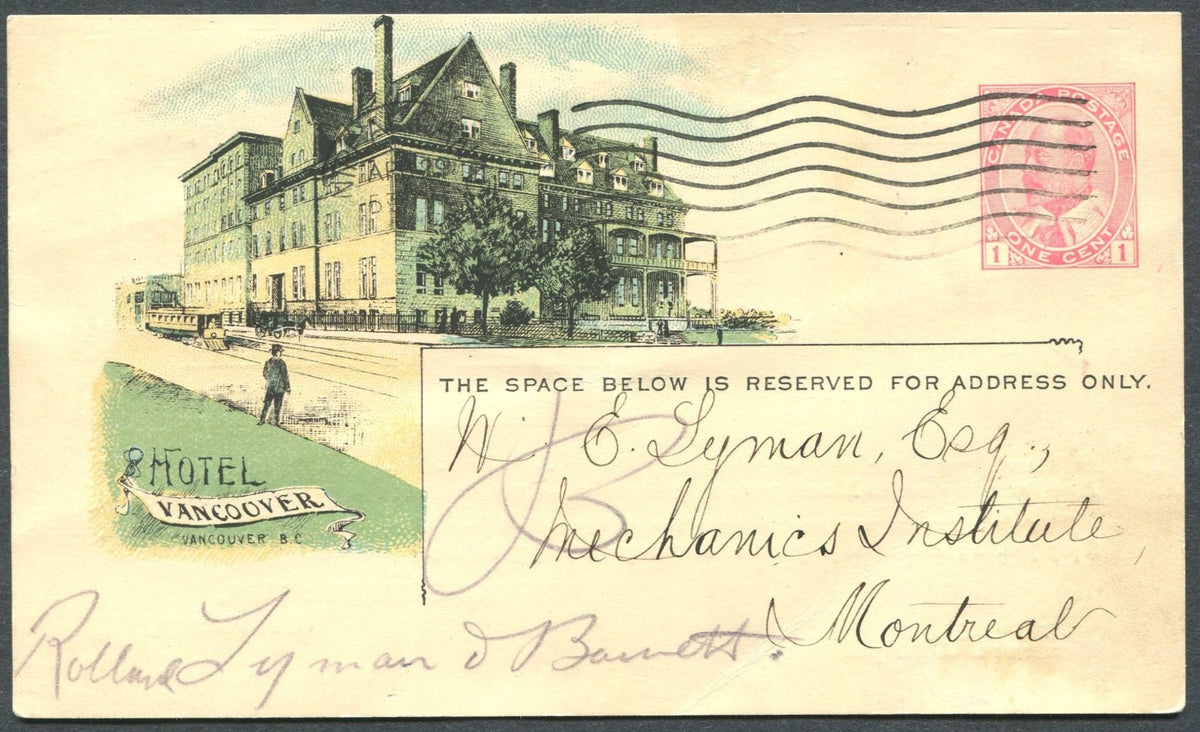 CANADA POSTAGE
1 ONE CENT 1
THE SPACE BELOW IS RESERVED FOR ADDRESS ONLY.
W. E. Lyman, Esq.,
Mechanics Institute,
Montreal
HOTEL
VANCOUVER
VANCOUVER B.C
Lyman & Barnett.